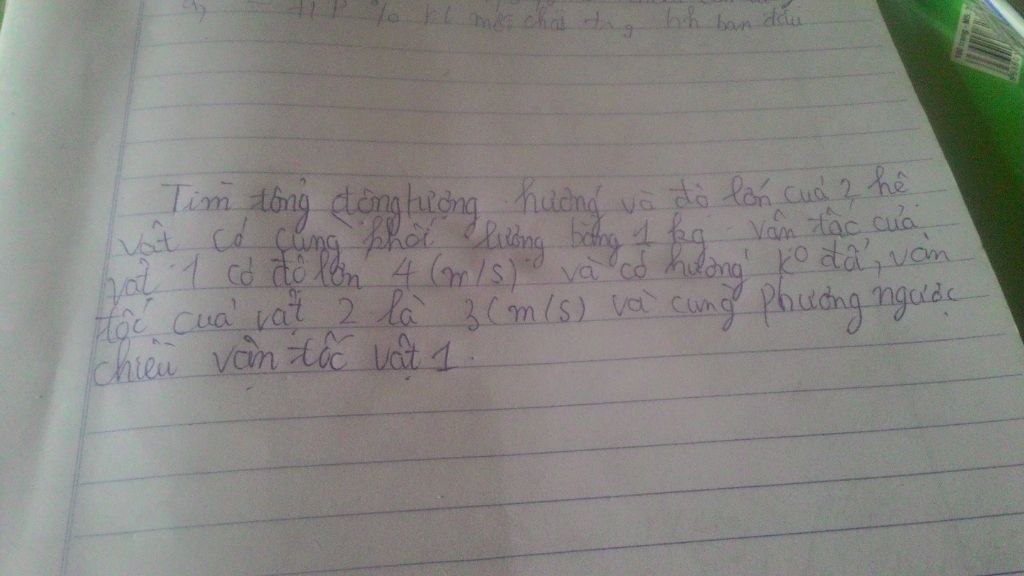 % kl mỗi chất hh ban đầu
Tìm tổng động lượng hướng và độ lớn của 2 hệ
vật có cùng khối lượng bằng 1 kg. Vận tốc của
vật 1 có độ lớn 4 (m/s) và có hướng k⁰ đổi, vận
tốc của vật 2 là 3 (m/s) và cùng phương ngược
chiều vận tốc vật 1.